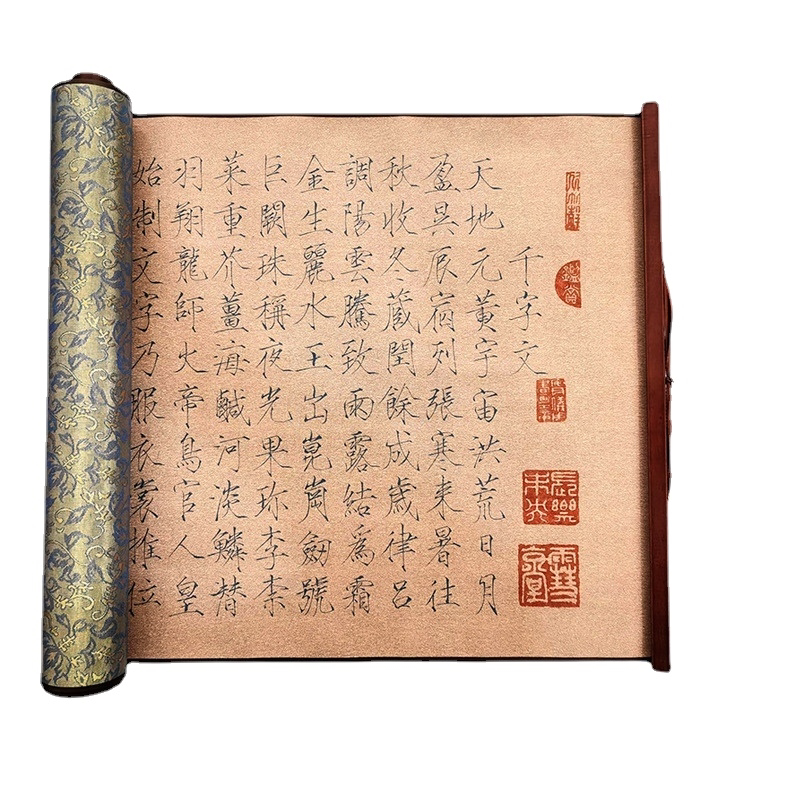 鑑賞
長樂未央
千字文
天地元黃宇宙洪荒日月
盈昃辰宿列張寒來暑往
秋收冬藏閏餘成歲律呂
調陽雲騰致雨露結爲霜
金生麗水玉出崑崗劒號
巨闕珠稱夜光果珎李柰
菜重芥薑海鹹河淡鱗替
羽翔龍師火帝鳥官人皇
始制文字乃服衣裳推位